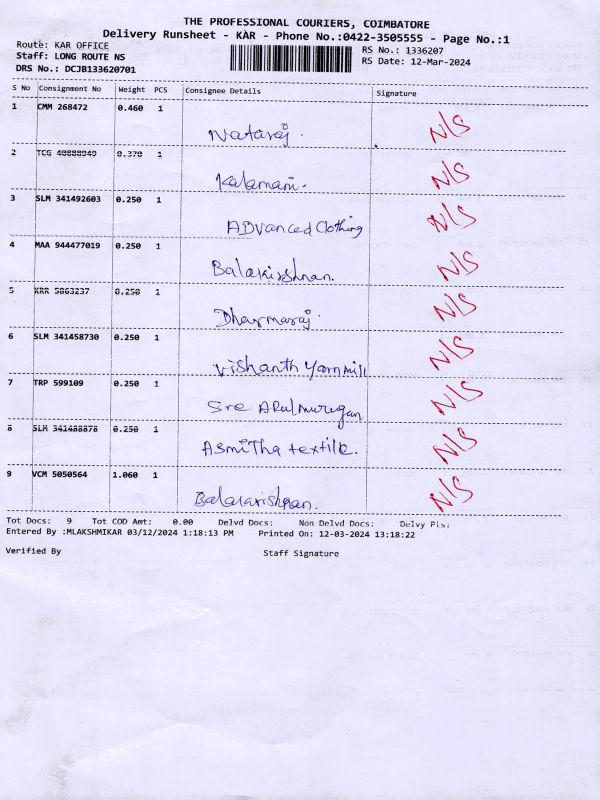 THE PROFESSIONAL COURIERS, COIMBATORE
Delivery Runsheet - KAR - Phone No.:0422-3505555 - Page No.:1
Route: KAR OFFICE
Staff: LONG ROUTE NS
DRS No.: DCJB133620701
RS No.: 1336207
RS Date: 12-Mar-2024
S No Consignment No Weight PCS Consignee Details Signature
1 CMM 268472 0.460 1
Nataraj. N/S
2 TCG 40888949 0.370 1
Kalamani. N/S
3 SLM 341492603 0.250 1
ADvanced Clothing N/S
4 MAA 944477019 0.250 1
Balakrishnan. N/S
5 KRR 5863237 0.250 1
Dharmaraj. N/S
6 SLM 341458730 0.250 1
Vishanth Yarn mill N/S
7 TRP 599109 0.250 1
Sre ARulmurugan N/S
8 SLM 341488878 0.250 1
Asmitha textile. N/S
9 VCM 5050564 1.060 1
Balakrishnan. N/S
Tot Docs: 9 Tot COD Amt: 0.00 Delvd Docs: Non Delvd Docs: Delvy Pls:
Entered By :MLAKSHMIKAR 03/12/2024 1:18:13 PM Printed On: 12-03-2024 13:18:22
Verified By Staff Signature